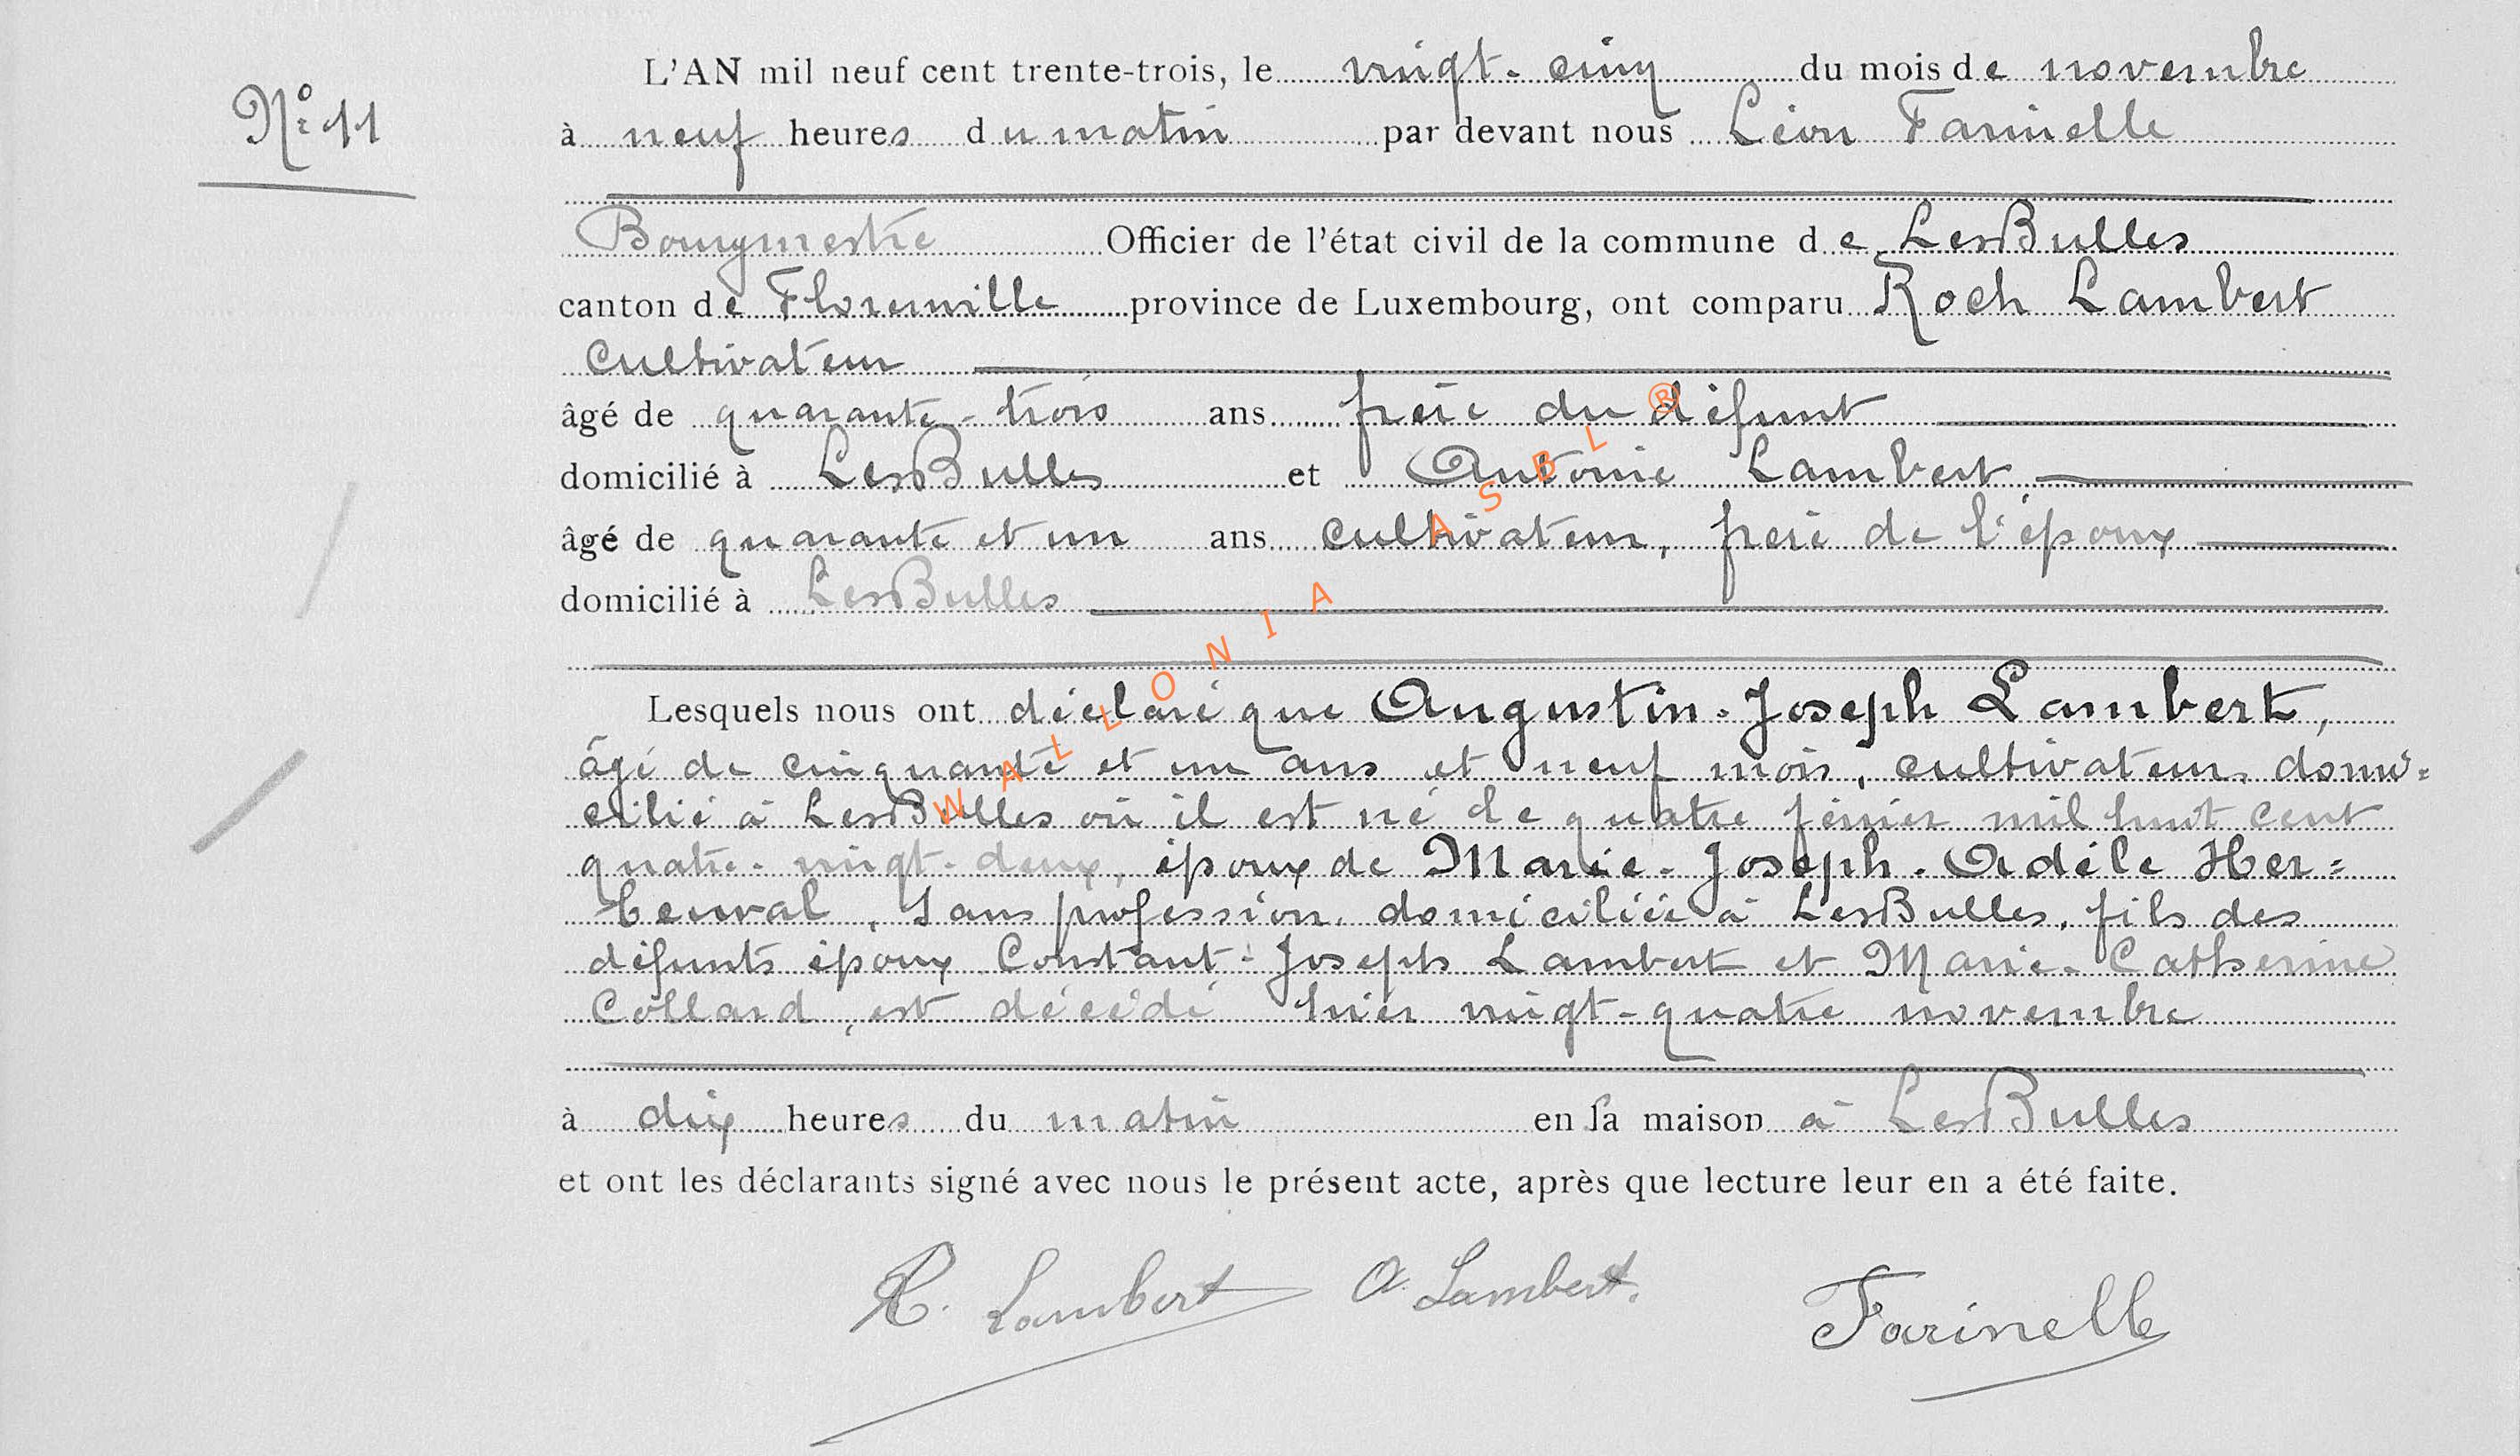 N° 11
L'AN mil neuf cent trente-trois, le vingt-cinq du mois de novembre
à neuf heures du matin par devant nous Léon Farinelle
Bourgmestre Officier de l'état civil de la commune de LesBulles
canton de Florenville province de Luxembourg, ont comparu Roch Lambert
cultivateur
âgé de quarante-trois ans frère du défunt
domicilié à LesBulles et Antonie Lambert
âgé de quarante et un ans cultivateur, frère de l'époux
domicilié à LesBulles
Lesquels nous ont déclaré que Augustin-Joseph Lambert,
âgé de cinquante et un ans et neuf mois, cultivateur, domi=
cilié à LesBulles où il est né le quatre février mil huit cent
quatre-vingt-deux, époux de Marie-Joseph-Adèle Her=
beuval, sans profession, domiciliée à LesBulles, fils des
défunts époux Constant-Joseph Lambert et Marie-Catherine
Collard, est décédé hier vingt-quatre novembre
à dix heures du matin en sa maison à LesBulles
et ont les déclarants signé avec nous le présent acte, après que lecture leur en a été faite.
R. Lambert A. Lambert. Farinelle
WALLONIA ASBL ®